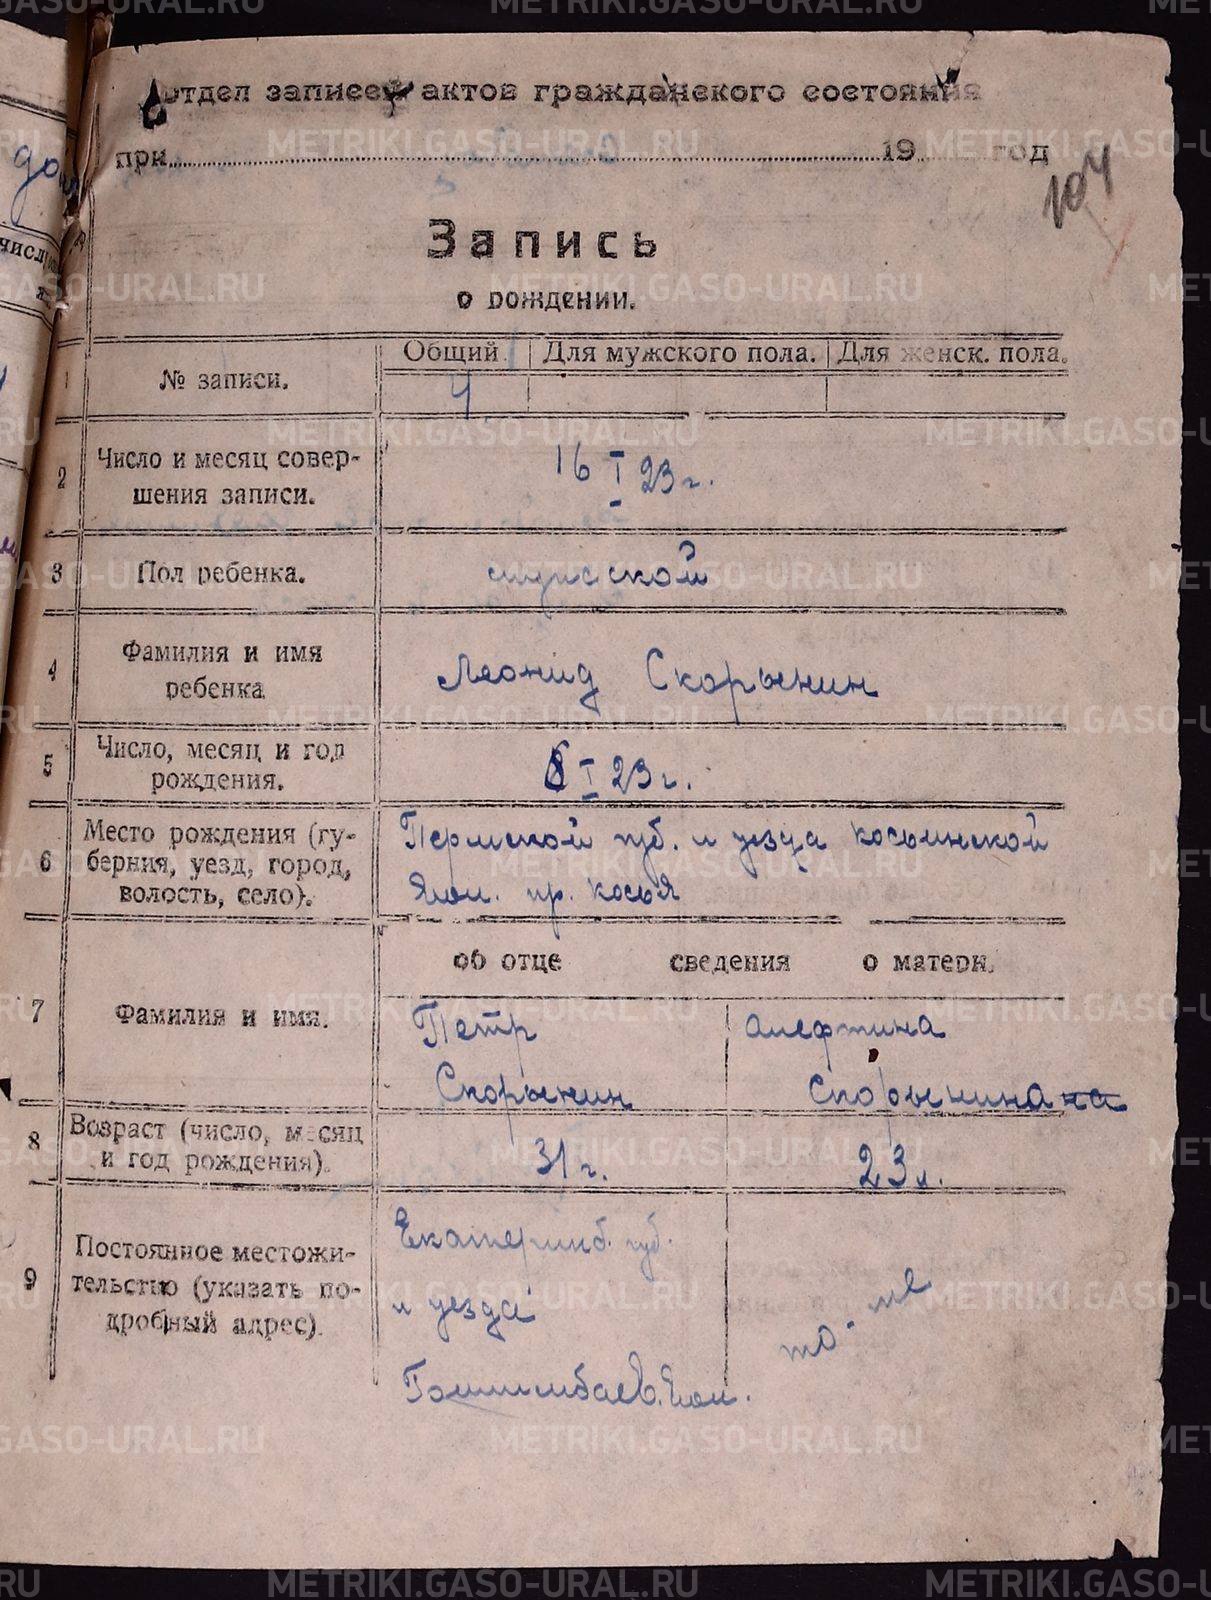 отдел записей актов гражданского состояния
при 19 год
104
Запись
о рождении.
Общий. Для мужского пола. Для женск. пола.
1 № записи. 4
2 Число и месяц совер-
шения записи. 16 I 23 г.
3 Пол ребенка. мужской
4 Фамилия и имя
ребенка Леонид Скорынин
5 Число, месяц и год
рождения. 6 I 23 г.
6 Место рождения (гу-
берния, уезд, город,
волость, село).
Пермской губ. и уезда косьинской
Вол. пр. косья
об отце сведения о матери.
7 Фамилия и имя.
Петр
Скорынин
алефтина
Скорынина
8 Возраст (число, месяц
и год рождения). 31 г. 23 л.
9 Постоянное местожи-
тельство (указать по-
дробный адрес).
Екатеринб. губ.
и уезда
вол.
то же
METRIKI.GASO-URAL.RU